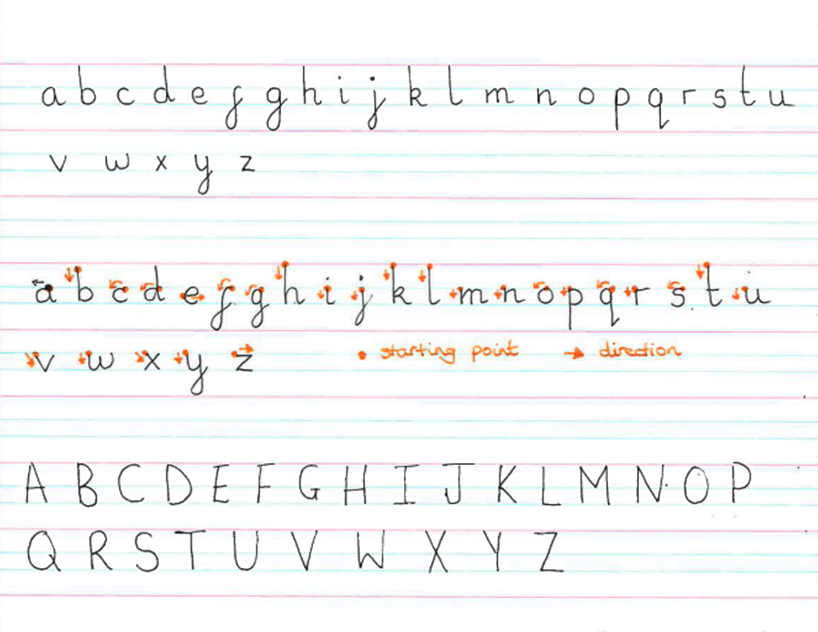 a b c d e f g h i j k l m n o p q r s t u
v w x y z
a b c d e f g h i j k l m n o p q r s t u
v w x y z • starting point → direction
A B C D E F G H I J K L M N O P
Q R S T U V W X Y Z